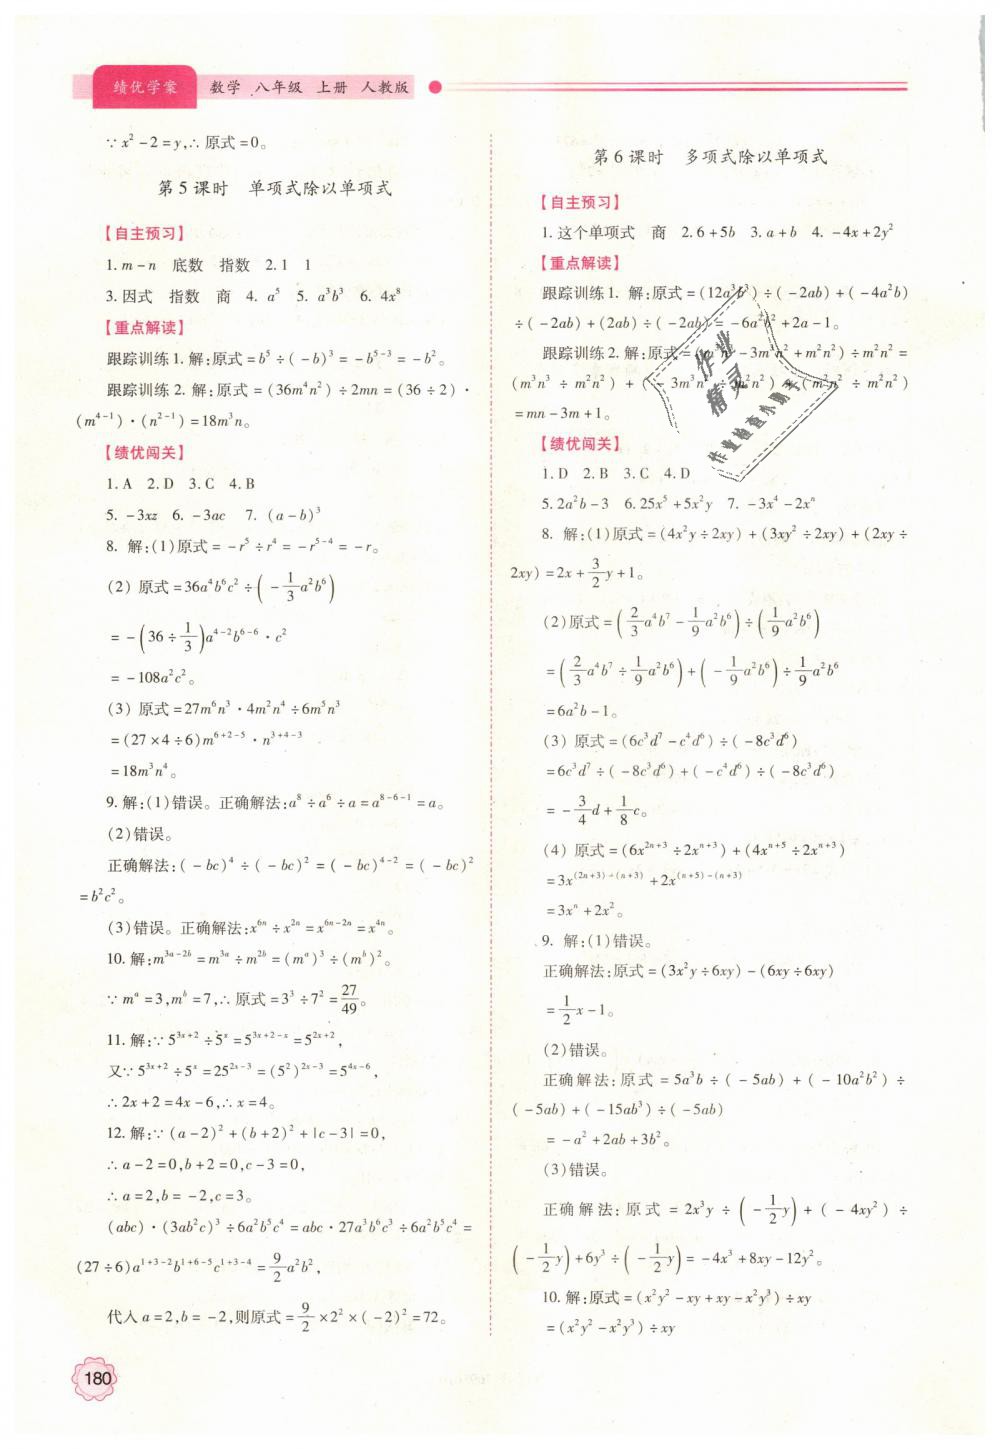 绩优学案 数学 八年级 上册 人教版
∵x²-2=y,∴原式=0。
第5课时 单项式除以单项式
【自主预习】
1. m-n 底数 指数 2. 1 1
3. 因式 指数 商 4. a⁵ 5. a³b³ 6. 4x⁸
【重点解读】
跟踪训练1. 解:原式=b⁵÷(-b)³=-b⁵⁻³=-b²。
跟踪训练2. 解:原式=(36m⁴n²)÷2mn=(36÷2)·
(m⁴⁻¹)·(n²⁻¹)=18m³n。
【绩优闯关】
1. A 2. D 3. C 4. B
5. -3xz 6. -3ac 7. (a-b)³
8. 解:(1)原式=-r⁵÷r⁴=-r⁵⁻⁴=-r。
(2) 原式=36a⁴b⁶c²÷(-1/3a²b⁶)
=-(36÷1/3)a⁴⁻²b⁶⁻⁶·c²
=-108a²c²。
(3) 原式=27m⁶n³·4m²n⁴÷6m⁵n³
=(27×4÷6)m⁶⁺²⁻⁵·n³⁺⁴⁻³
=18m³n⁴。
9. 解:(1)错误。正确解法:a⁸÷a⁶÷a=a⁸⁻⁶⁻¹=a。
(2)错误。
正确解法:(-bc)⁴÷(-bc)²=(-bc)⁴⁻²=(-bc)²
=b²c²。
(3)错误。正确解法:x⁶ⁿ÷x²ⁿ=x⁶ⁿ⁻²ⁿ=x⁴ⁿ。
10. 解:m^(3a-2b)=m^(3a)÷m^(2b)=(m^a)³÷(m^b)²。
∵m^a=3,m^b=7,∴原式=3³÷7²=27/49。
11. 解:∵5^(3x+2)÷5^x=5^(3x+2-x)=5^(2x+2),
又∵5^(3x+2)÷5^x=25^(2x-3)=(5²)^(2x-3)=5^(4x-6),
∴2x+2=4x-6,∴x=4。
12. 解:∵(a-2)²+(b+2)²+|c-3|=0,
∴a-2=0,b+2=0,c-3=0,
∴a=2,b=-2,c=3。
(abc)·(3ab²c)³÷6a²b⁵c⁴=abc·27a³b⁶c³÷6a²b⁵c⁴=
(27÷6)a¹⁺³⁻²b¹⁺⁶⁻⁵c¹⁺³⁻⁴=9/2a²b²,
代入a=2,b=-2,则原式=9/2×2²×(-2)²=72。
180
第6课时 多项式除以单项式
【自主预习】
1. 这个单项式 商 2. 6+5b 3. a+b 4. -4x+2y²
【重点解读】
跟踪训练1. 解:原式=(12a³b³)÷(-2ab)+(-4a²b)
÷(-2ab)+(2ab)÷(-2ab)=-6a²b²+2a-1。
跟踪训练2. 解:原式=(m³n³-3m³n²+m²n²)÷m²n²=
(m³n³÷m²n²)+(-3m³n²÷m²n²)+(m²n²÷m²n²)
=mn-3m+1。
作业
精灵
作业检查小助手
【绩优闯关】
1. D 2. B 3. C 4. D
5. 2a²b-3 6. 25x⁵+5x²y 7. -3x⁴-2xⁿ
8. 解:(1)原式=(4x²y÷2xy)+(3xy²÷2xy)+(2xy÷
2xy)=2x+3/2y+1。
(2)原式=(2/3a⁴b⁷-1/9a²b⁶)÷(1/9a²b⁶)
=(2/3a⁴b⁷÷1/9a²b⁶)+(-1/9a²b⁶)÷1/9a²b⁶
=6a²b-1。
(3) 原式=(6c³d⁷-c⁴d⁶)÷(-8c³d⁶)
=6c³d⁷÷(-8c³d⁶)+(-c⁴d⁶)÷(-8c³d⁶)
=-3/4d+1/8c。
(4) 原式=(6x²ⁿ⁺³÷2xⁿ⁺³)+(4xⁿ⁺⁵÷2xⁿ⁺³)
=3x⁽²ⁿ⁺³⁾⁻⁽ⁿ⁺³⁾+2x⁽ⁿ⁺⁵⁾⁻⁽ⁿ⁺³⁾
=3xⁿ+2x²。
9. 解:(1)错误。
正确解法:原式=(3x²y÷6xy)-(6xy÷6xy)
=1/2x-1。
(2)错误。
正确解法:原式=5a³b÷(-5ab)+(-10a²b²)÷
(-5ab)+(-15ab³)÷(-5ab)
=-a²+2ab+3b²。
(3)错误。
正确解法:原式=2x³y÷(-1/2y)+(-4xy²)÷
(-1/2y)+6y³÷(-1/2y)=-4x³+8xy-12y²。
10. 解:原式=(x²y²-xy+xy-x²y³)÷xy
=(x²y²-x²y³)÷xy